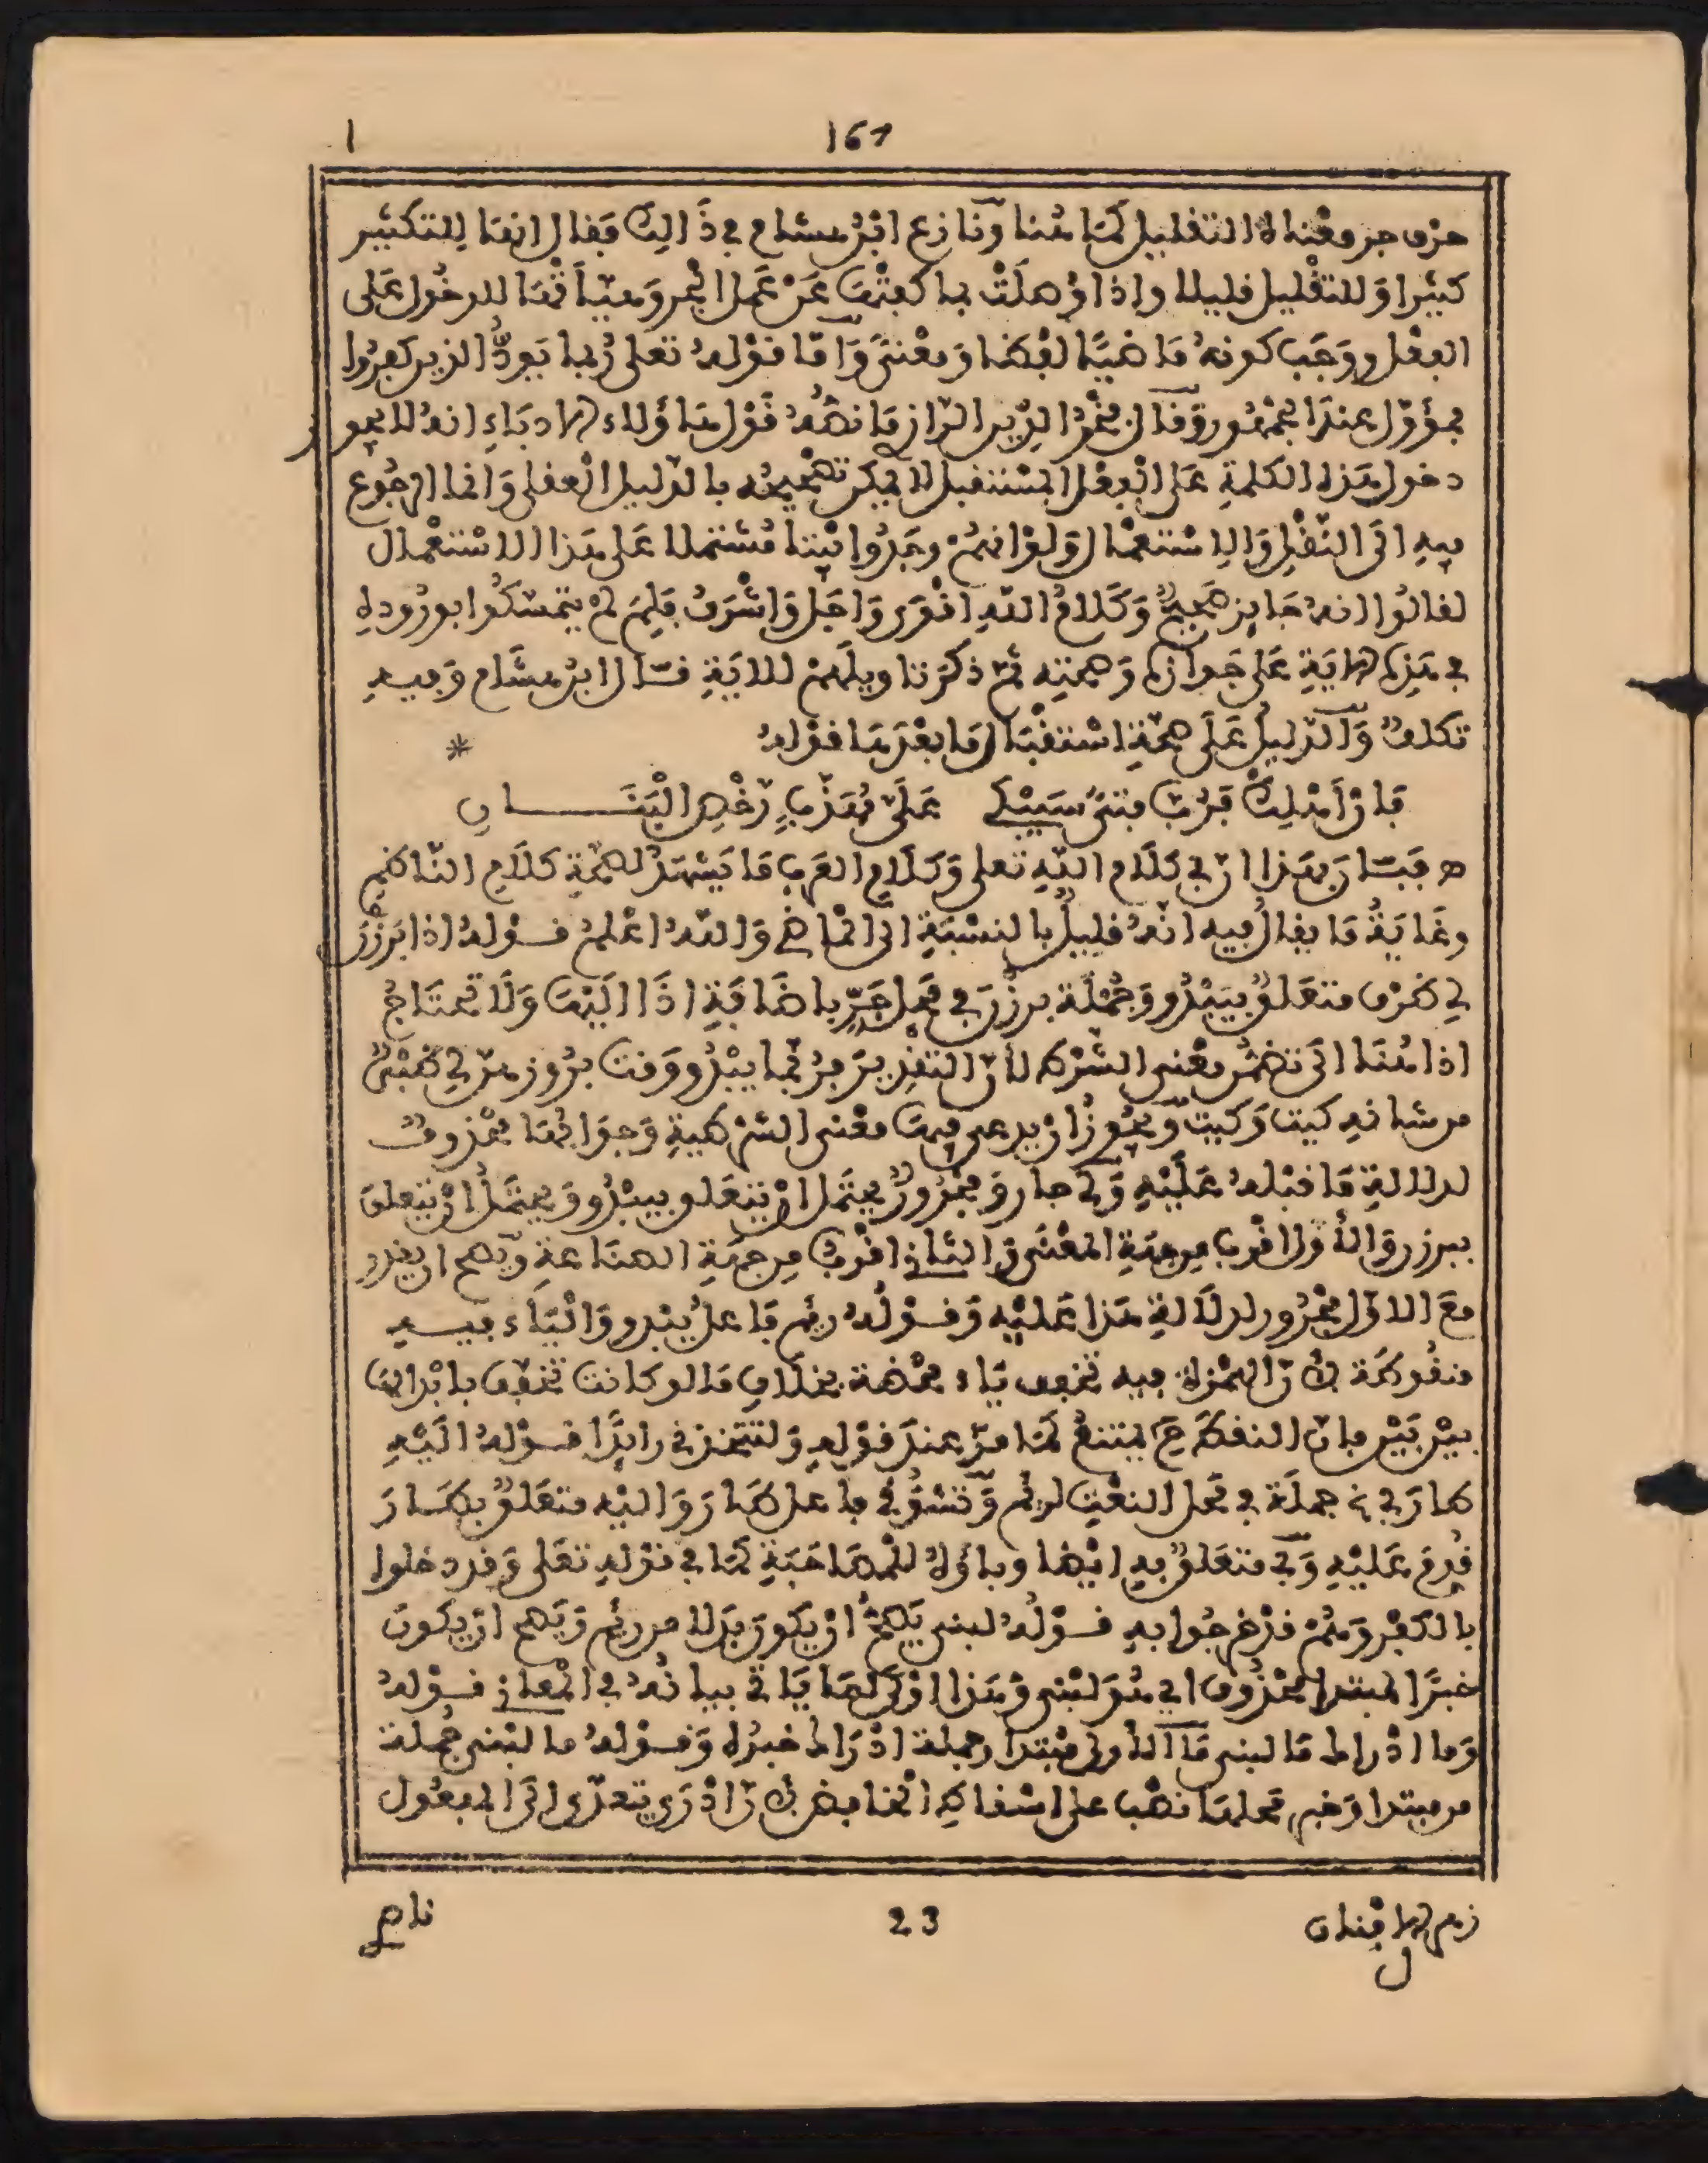 161
1
حرف جر ومعناه التقليل كما هنا ونازع ابن هشام في ذالك فقال انها للتكثير
كثيرا وللتقليل قليلا واذا وصلت بما كفتها عن عمل الجر وهيأتها للدخول على
الفعل ووجب كونه ماضيا لفظا ومعنى وأما قوله تعلى ربما يود الذين كفروا
فمؤول عند الجمهور وقال فخر الدين الرازي ما نصه قول هاؤلاء الادباء انه لا يجوز
دخول هذه الكلمة على الفعل المستقبل لا يمكن تصحيحه بالدليل العقلي وانما الرجوع
فيه الى النقل والاستعمال ولو انهم وجدوا بيتا مشتملا على هذا الاستعمال
لقالوا انه جايز صحيح وكلام الله اقوى واجل واشرف فلم لم يتمسكوا بوروده
في هذه الاية على جوازه وصحته ثم ذكر تاويلهم للاية قال ابن هشام وفيه
تكلف والدليل على صحة استقبال ما بعدها قوله *
فان أهلك فرب فتى سيبكي على مهذب رخص البنان
فبان بهذا ان في كلام الله تعلى وكلام العرب ما يشهد لصحة كلام الناظم
وغاية ما يقال فيه انه قليل بالنسبة الى الماضي والله اعلم قوله اذا برزن
لي ظرف متعلق بيبدو وجملة برزن في محل جر باضافة اذا اليها ولا تحتاج
اذا هنا الى تضمن معنى الشرط لان التقدير رب ريم يبدو وقت بروزهن لي ظبي
من شانه كيت وكيت ويجوز ان يدعى فيها معنى الشرطية وجوابها محذوف
لدلالة ما قبله عليه ولي جار ومجرور يحتمل ان يتعلق بيبدو ويحتمل ان يتعلق
ببرزن والاول اقرب من جهة المعنى والثاني اقرب من جهة الصناعة ويصح ان يقدر
مع الاول مجرور لدلالة هذا عليه وقوله ريم فاعل يبدو والياء فيه
منقوطة لان الهمزة فيه تخفف ياء محضة بخلاف ما لو كانت تخفف بابدالها
بين بين فان النقط ح يمتنع كما مر عند قوله ولتتخذني رايدا قوله اليه
طار بي جملة في محل النعت لريم وتشوقي فاعل طار واليه متعلق بطار
قدم عليه وبي متعلق به ايضا وباؤه للمصاحبة كما في قوله تعلى وقد دخلوا
بالكفر وهم قد خرجوا به قوله لبنى يصح ان يكون بدلا من ريم ويصح ان يكون
خبرا لمبتدا محذوف اي هو لبنى وهذا اولى لما ياتي بيانه في المعاني قوله
وما ادراك ما لبنى ما الاولى مبتدا وجملة ادراك خبره وقوله ما لبنى جملة
من مبتدا وخبر محلها نصب على اسقاط الخافض لان ادرى يتعدى الى المفعول
زهر الافنان
ل
23
ناص